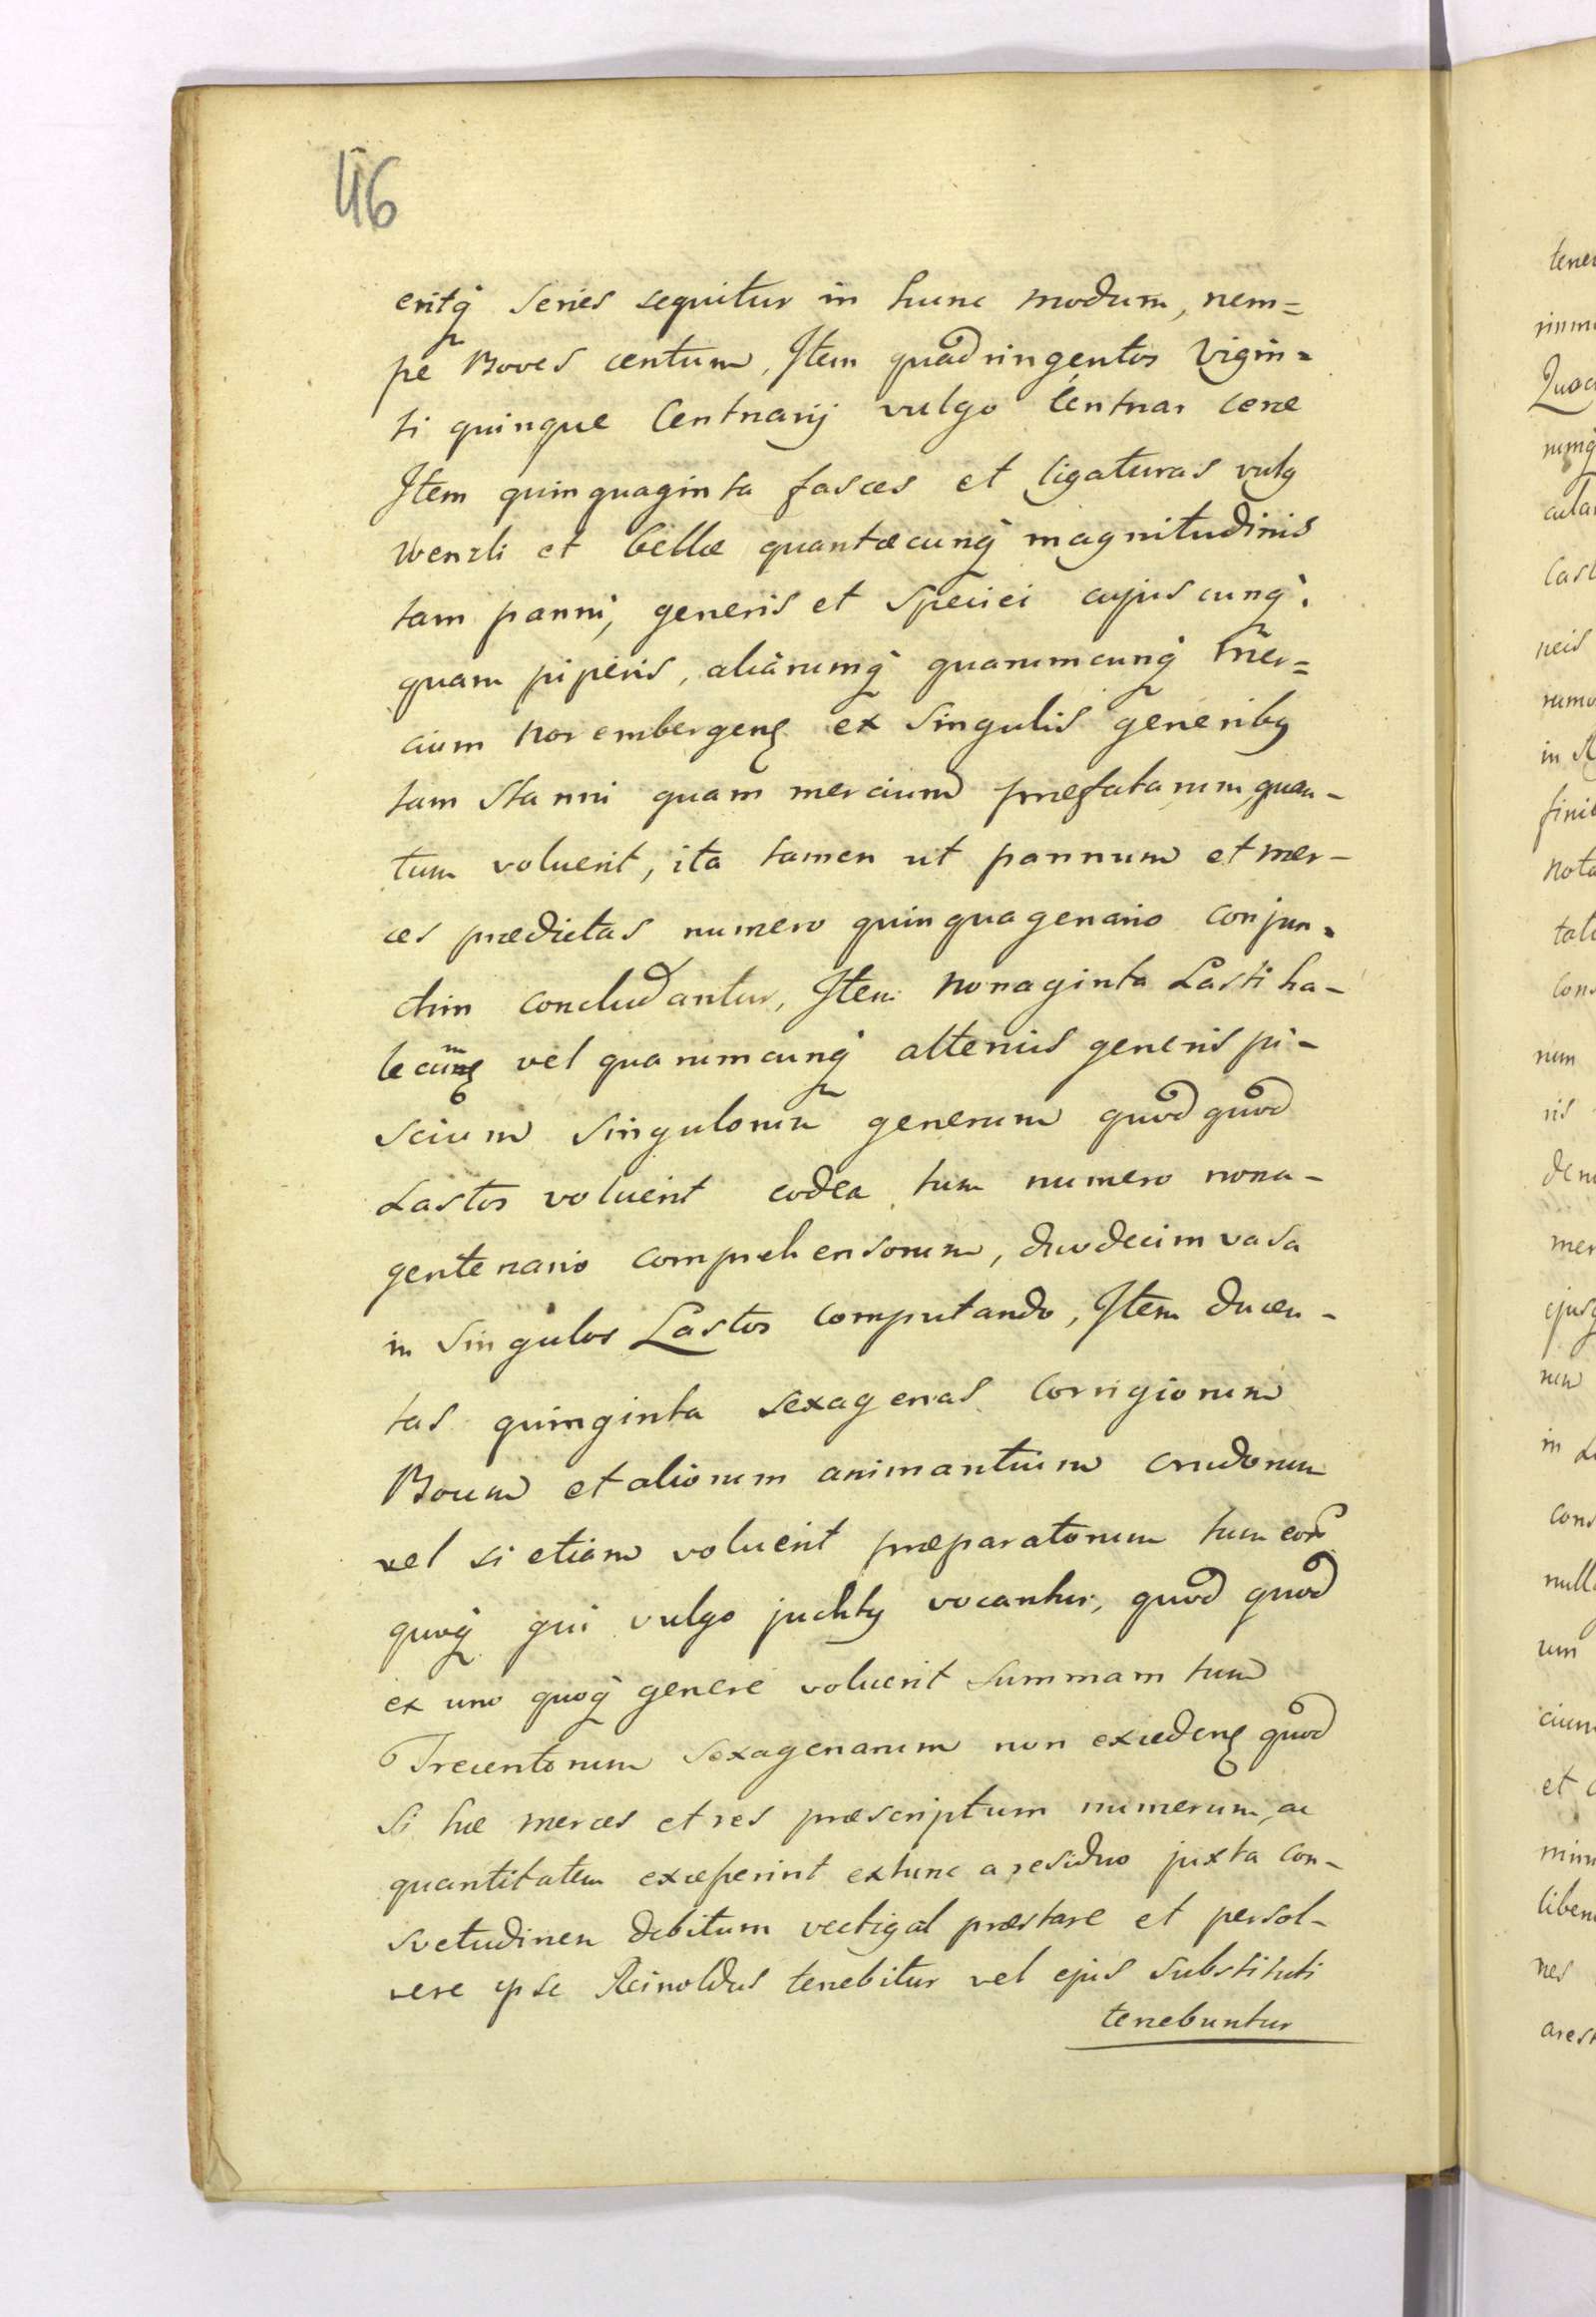 46
eritq; series sequitur in hunc modum, nem=
pe Boves centum, Item quadringentos Vigin=
ti quinque Centnarij vulgo Centnar cere
Item quinquaginta fasces et ligaturas vulg
wenzli et bellæ quantæcunq; magnitudinis
tam panni, generis et speciei cujuscunq;
quam piperis, aliarumq; quarumcunq; mer=
cium norembergens ex singulis generibus
tam stanni quam mercium præfatarum, quan-
tum voluerit, ita tamen ut pannum et mer-
ces prædictas numero quinquagenario conjun=
ctim concludantur, Item Nonaginta Lasti ha-
lecum vel quarumcunq; alterius generis pi-
scium singulorum generum quod quod
Lastos voluerit eodea tum numero nona-
gentenario comprehensorum, duodecim vasa
in singulos Lastos computando, Item ducen-
tas quinginta sexagenas corrigiorum
Boum et aliorum animantium crudorum
vel si etiam voluerit præparatorum tum eor
quoq; qui vulgo juchty vocantur, quod quod
ex uno quoq; genere voluerit summam tum
Trecentorum sexagenarum non excedens quod
si hæ merces et res præscriptum numerum, ac
quantitatem exceperint extunc a residuo juxta con-
svetudinem debitum vectigal præstare et persol-
vere ipse Reinoldus tenebitur vel ejus substituti
tenebuntur